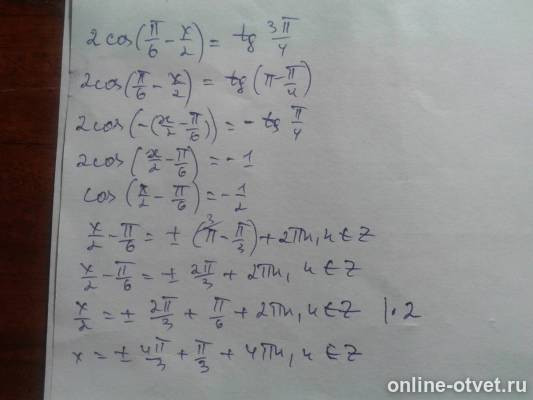 2cos(π/6 - x/2) = tg 3π/4
2cos(π/6 - x/2) = tg(π - π/4)
2cos(-(x/2 - π/6)) = - tg π/4
2cos(x/2 - π/6) = - 1
cos(x/2 - π/6) = - 1/2
x/2 - π/6 = ± (³π - π/3) + 2πn, n ∈ Z
x/2 - π/6 = ± 2π/3 + 2πn, n ∈ Z
x/2 = ± 2π/3 + π/6 + 2πn, n ∈ Z |·2
x = ± 4π/3 + π/3 + 4πn, n ∈ Z
online-otvet.ru